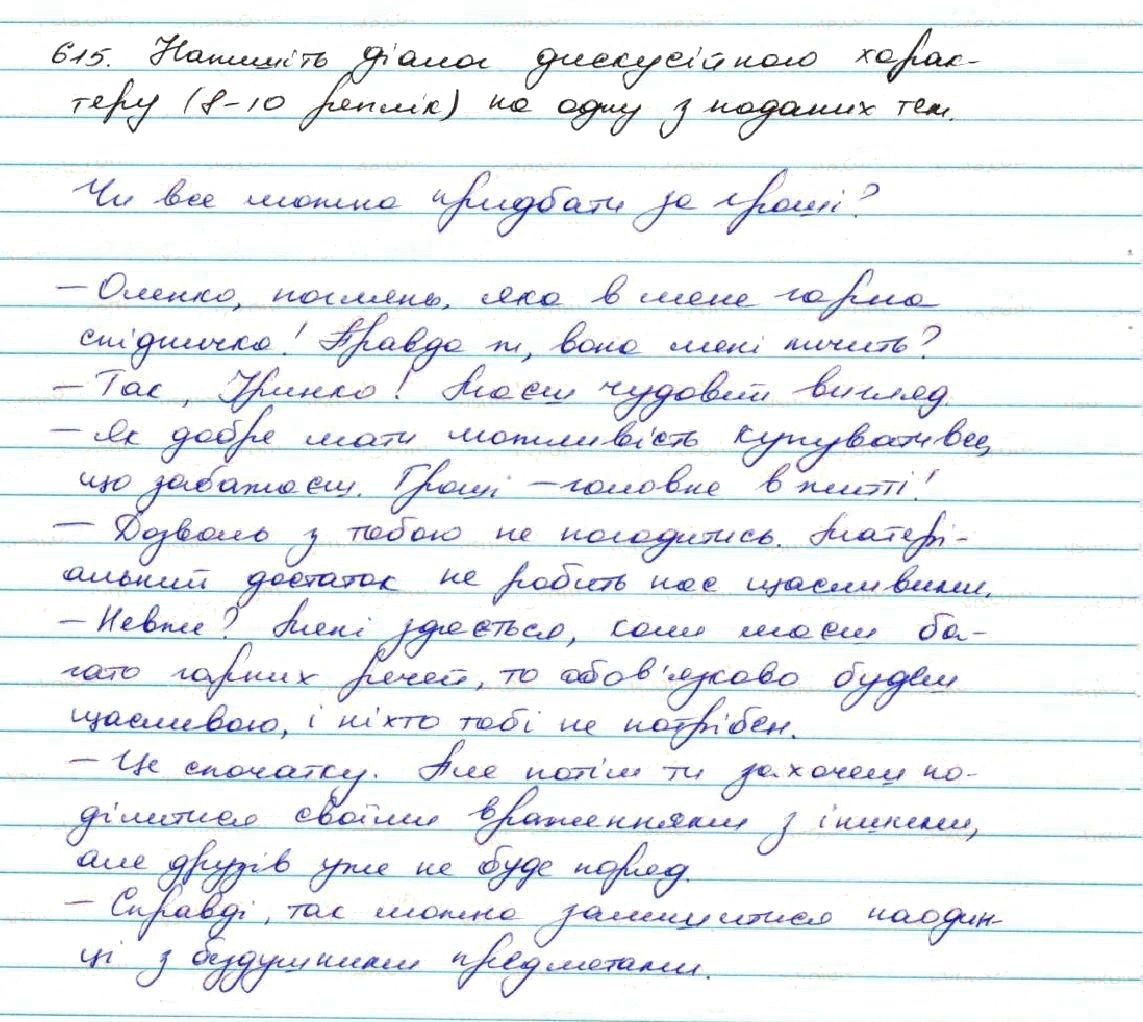 615. Напишіть діалог дискусійного харак-
теру (8-10 реплік) на одну з поданих тем.
Чи все можна придбати за гроші?
— Оленко, поглянь, яка в мене гарна
спідничка! Правда ж, вона мені личить?
— Так, Іринко! Маєш чудовий вигляд
— Як добре мати можливість купувати все,
що забажаєш. Гроші — головне в житті!
— Дозволь з тобою не погодитись. Матері-
альний достаток не робить нас щасливими.
— Невже? Мені здається, коли маєш ба-
гато гарних речей, то обов'язково будеш
щасливою, і ніхто тобі не потрібен.
— Це спочатку. Але потім ти захочеш по-
ділитися своїми враженнями з іншими,
але друзів уже не буде поряд.
— Справді, так можна залишитися наодин-
ці з бездушними предметами.